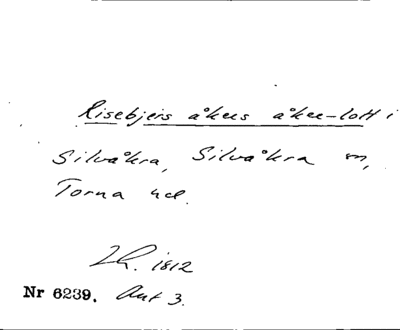 Risebjers åkers åker-lott i
Silvåkra, Silvåkra sn,
Torna hd.
LR. 1812
Nr 6239. Akt 3.